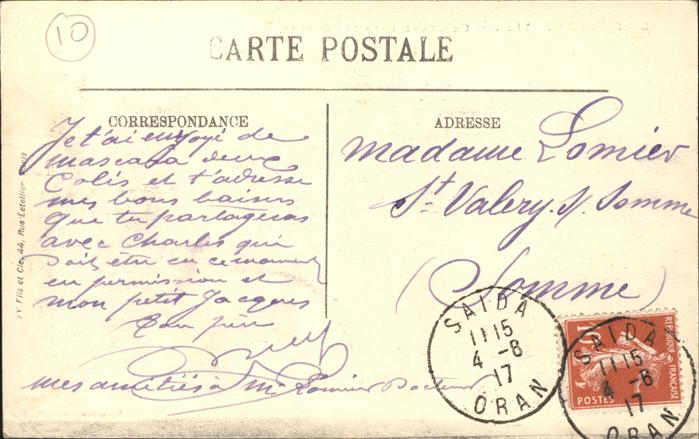 10
CARTE POSTALE
CORRESPONDANCE
ADRESSE
Je t'ai envoyé de
mascara deux
Colis et t'adresse
mes bons baisers
que tu partageras
avec Charles qui
doit être en ce moment
en permission et
mon petit Jacques
Ton père
mes amitiés à Mr Lomier Docteur
Madame Lomier
St Valery s/ Somme
(Somme)
SAIDA
11 15
4 -8
17
ORAN
SAIDA
11 15
4 -8
17
ORAN
10
REPUBLIQUE FRANÇAISE
POSTES
Fils et Cie, 44, Rue Letellier